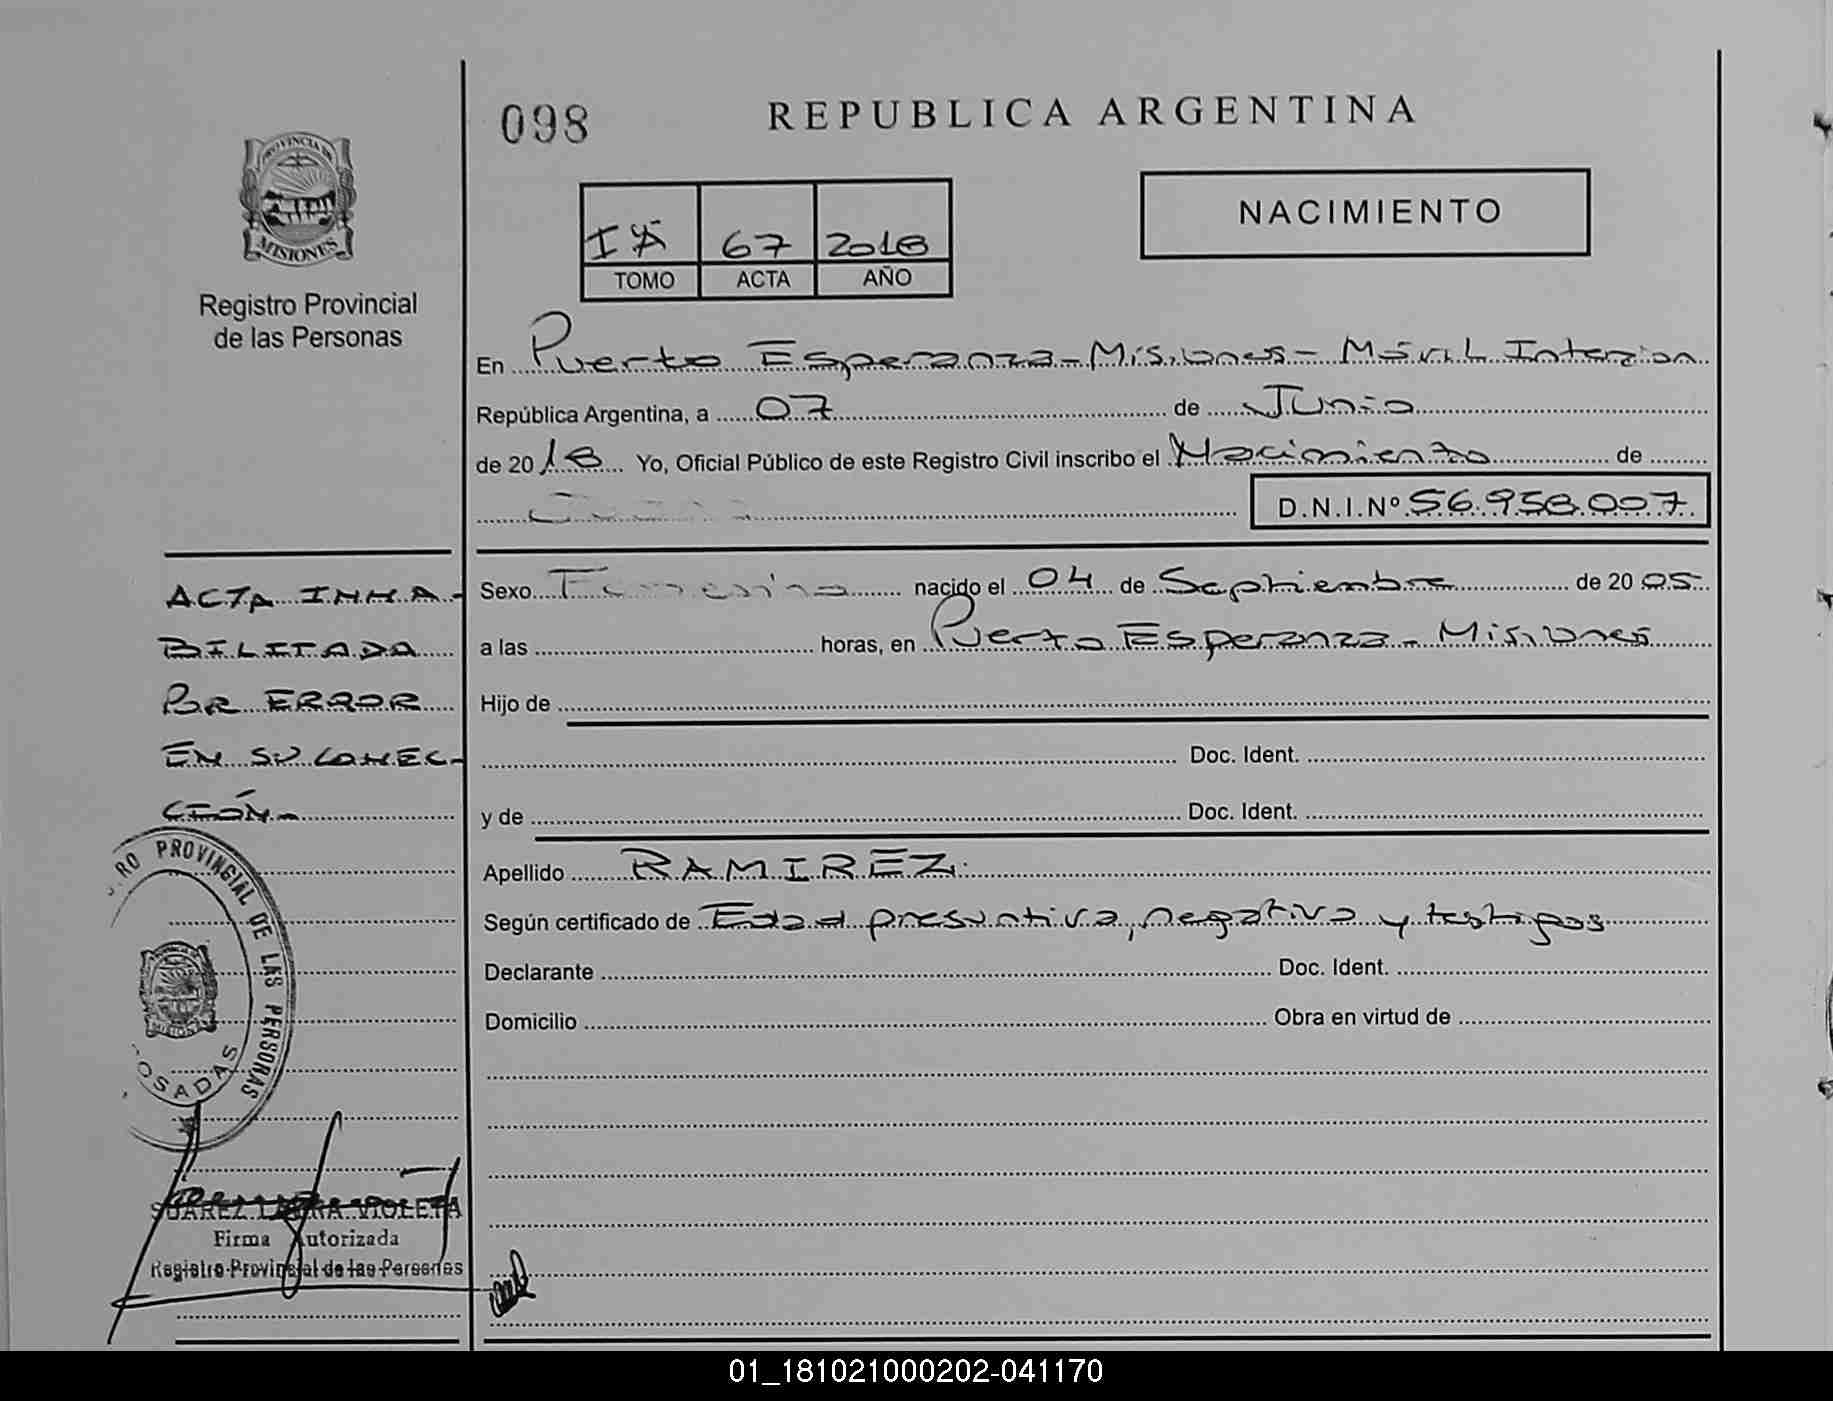 098
REPUBLICA ARGENTINA
PROVINCIA DE
MISIONES
Registro Provincial
de las Personas
67 2018
TOMO ACTA AÑO
NACIMIENTO
En Puerto Esperanza - Misiones - Móvil Interior
República Argentina, a 07 de Junio
de 2018 Yo, Oficial Público de este Registro Civil inscribo el Nacimiento de
D.N.I.Nº 56.958.007
Sexo Femenino nacido el 04 de Septiembre de 2005
a las horas, en Puerto Esperanza - Misiones
Hijo de
Doc. Ident.
y de Doc. Ident.
Apellido RAMIREZ
Según certificado de Edad presuntiva, negativa y testigos
Declarante Doc. Ident.
Domicilio Obra en virtud de
ACTA INHA-
BILITADA
POR ERROR
EN SU CONFEC-
CIÓN-
RO PROVINCIAL DE LAS PERSONAS
OSADAS
SUAREZ LAURA VIOLETA
Firma Autorizada
Registro Provincial de las Personas
01_181021000202-041170